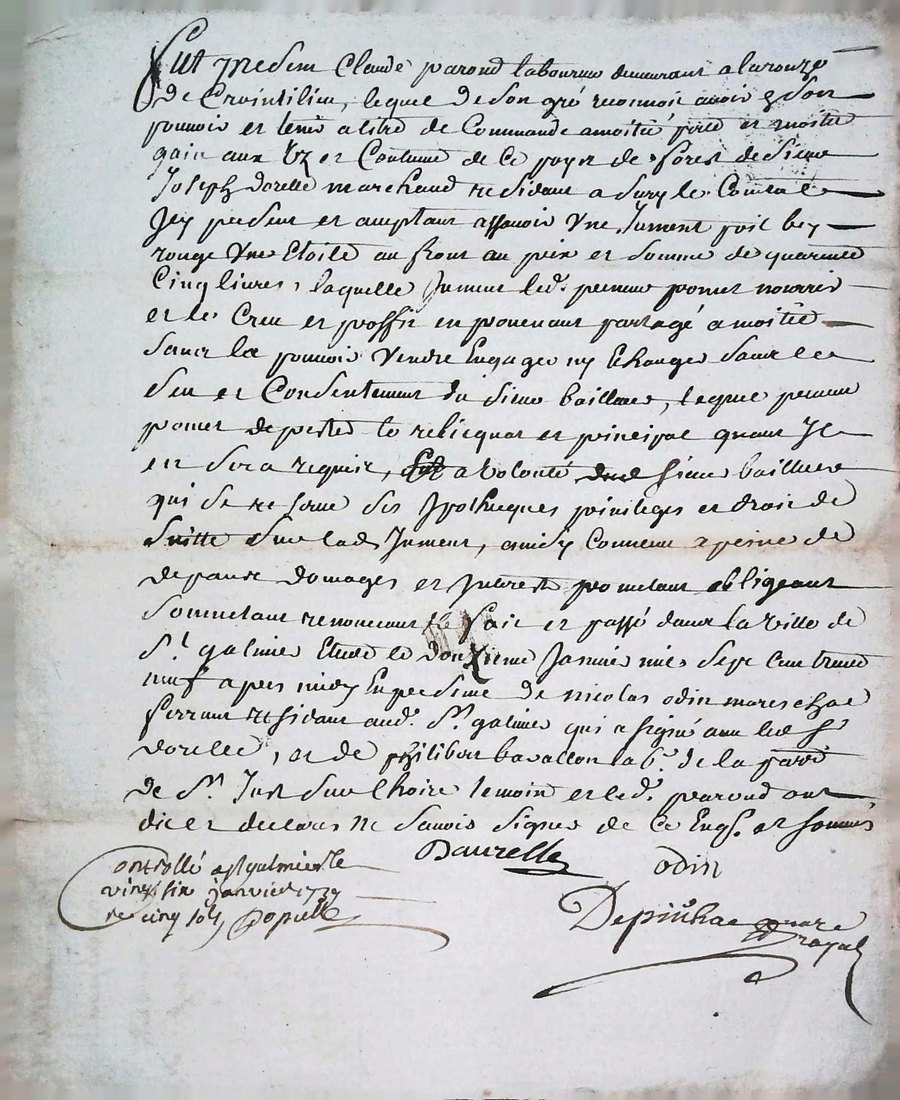 Fut present Claude parond laboureur demeurant a laronze
de Crointilieu, lequel de son gré reconnoit avoir en son
pouvoir et tenir a titre de Commande a moitié perte et moitié
gain aux Uz et Coutume de Ce payer de forest de sieur
Joseph dorelle marchand residant a Sury le Comtal
Jcy present et acceptant assavoir Une Jument poil bey
rouge Une Etoile au front au prix et Somme de quarante
Cinq livres, laquelle Jument led. preneur promet nourrir
et le Creu et proffit en provenant partagé a moitié
Sans la pouvoir Vendre Engager ny Echanger Sans le
Seu et Consentement du Sieur bailleur, lequel preneur
promet de porter le relicquat et principal quant Jl
en Sera requis, a Volonté dud sieur bailleur
qui Se reserve Ses Jpotheques privileges et droit de
Suitte Sur lad. Jument, ainsy Convenu a peine de
depans domages et Jnterest promettant obligeant
Soumettant renonceant fait et passé dans la Ville de
St. galmier Etude le douxieme Janvier mil Sept Cent trente
neuf apres midy En presence de nicolas odin mareschal
ferrant residant aud. St. galmier qui a signé avec led sr
dorelle, et de philibert bavallon lab. de la parr.
de St. Just Sur lhoire temoin et led. parond ont
dit et declaré ne Scavoir Signer de Ce Enq. et Sommés
Daurelle odin
Controllé a St galmier le
vingt six janvier 1739
re cinq sols
Depinhac notre
Royal